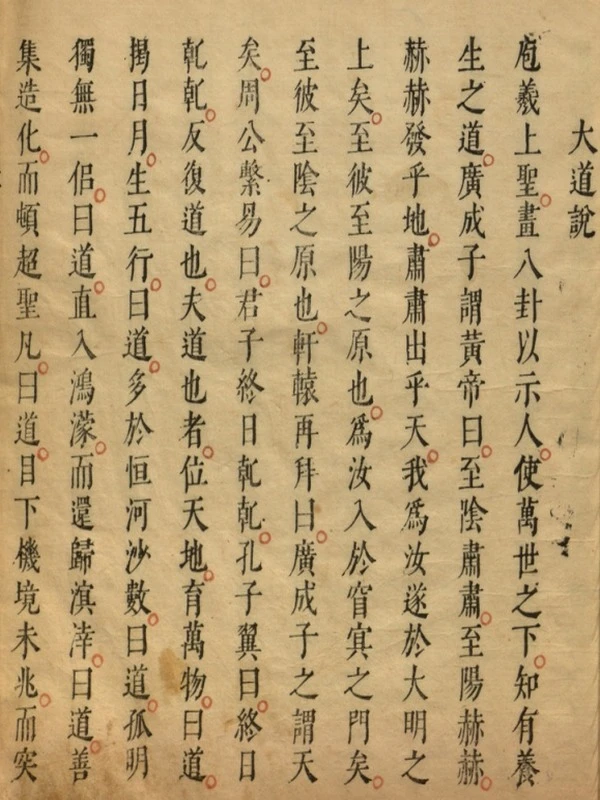 大道說
庖羲上聖畫八卦以示人使萬世之下知有養
生之道廣成子謂黃帝曰至陰肅肅至陽赫赫
赫赫發乎地肅肅出乎天我爲汝遂於大明之
上矣至彼至陽之原也爲汝入於窅㝠之門矣
至彼至陰之原也軒轅再拜曰廣成子之謂天
矣周公繫易曰君子終日乹乹孔子翼曰終日
乹乹反復道也夫道也者位天地育萬物曰道
揭日月生五行曰道多於恒河沙數曰道孤明
獨無一侶曰道直入鴻濛而還歸溟涬曰道善
集造化而頓超聖凡曰道目下機境未兆而突